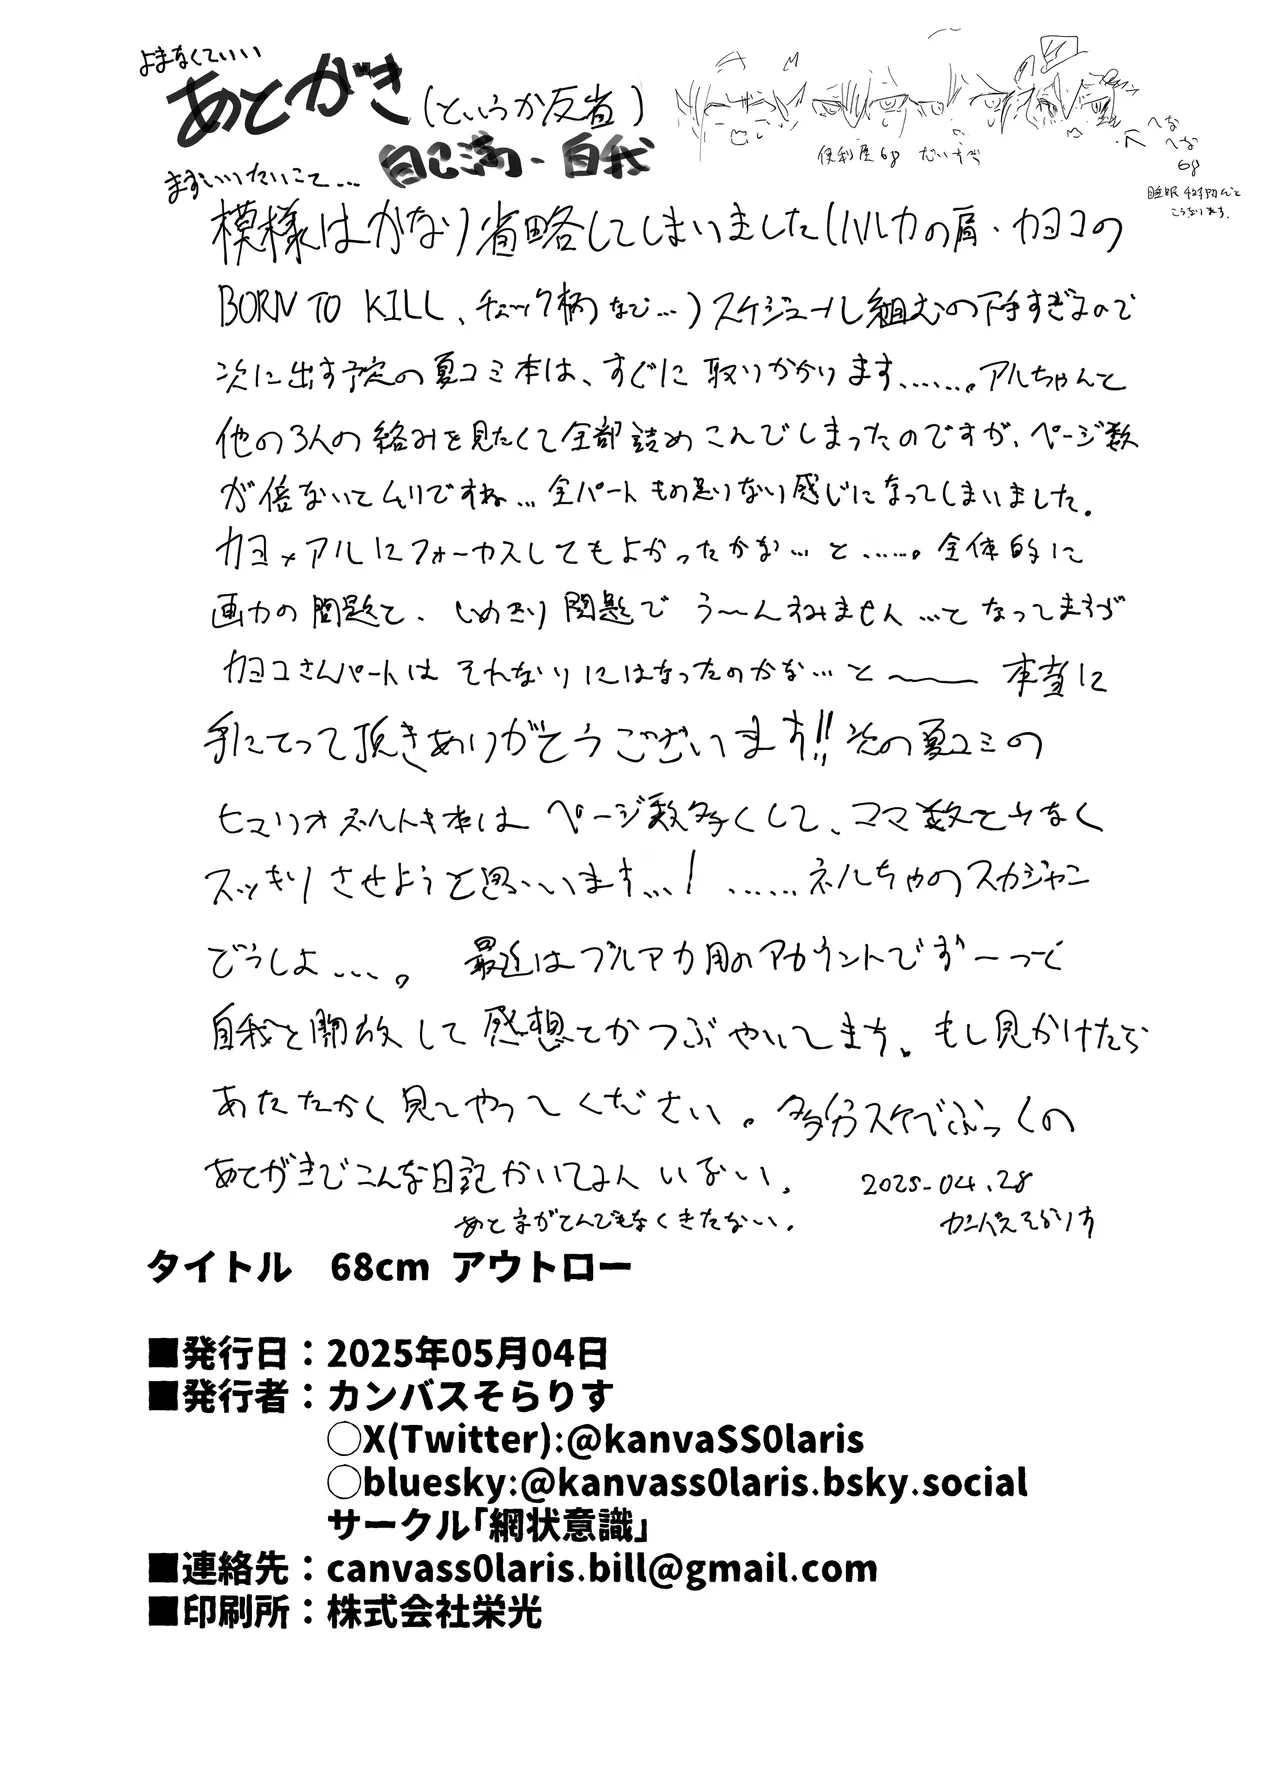 よまなくていい
あとがき(というか反省)
自己満・自我
便利屋68 だいすき
へな
へな
68
睡眠4時間だと
こうなります.
まずいいたいこと…
模様はかなり省略してしまいました(ハルカの肩・カヨコの
BORN TO KILL、チェック柄など…)スケジュール組むの下手すぎるので
次に出す予定の夏コミ本は、すぐに取りかかります……。アルちゃんと
他の3人の絡みを見たくて全部詰めこんでしまったのですが、ページ数
が倍ないとムリですね…全パートもの足りない感じになってしまいました。
カヨ×アルにフォーカスしてもよかったかな…と……。全体的に
画力の問題と、しめきり問題でう〜んすみません…となってますが
カヨコさんパートはそれなりにはなったのかな…と〜 本当に
手にとって頂きありがとうございます!!次の夏コミの
ヒマリオネルトキ本はページ数多くして、コマ数を少なく
スッキリさせようと思います…!……ネルちゃのスカジャン
どうしよ…。 最近はブルアカ用のアカウントでずーっと
自我を開放して感想とかつぶやいてます。もし見かけたら
あたたかく見てやってください。多分スケベぶっくの
あとがきでこんな日記かいてるん いない。 2025.04.28
あと字がとんでもなくきたない. カンバスそらりす
タイトル 68cm アウトロー
■発行日：2025年05月04日
■発行者：カンバスそらりす
○X(Twitter):@kanvaSS0laris
○bluesky:@kanvass0laris.bsky.social
サークル「網状意識」
■連絡先：canvass0laris.bill@gmail.com
■印刷所：株式会社栄光